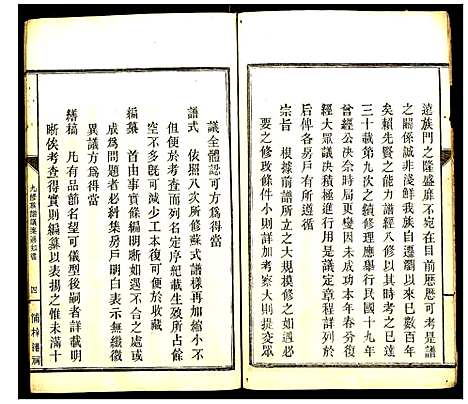 遠族門之隆盛靡不宛在目前歷歷可考是譜
之關係誠非淺鮮我族自遷瀏以來已數百年
矣賴先賢之能力成譜經八修以其時考之已逹
三十載第九次之續修理應舉行民國十九年
曾經公決奈時局更變因未成功本年春分復
經大眾議決積極進行用是議定章程詳列於
后俾各房戶有所遵循
宗旨 根據前譜所立之大規模修之如舊式
要之修攻條件小則詳加考察大則提交眾
議全體認可方爲得當
譜式 依照八次所修蘇式譜樣再加縮小不
但便於考查而列名定序紀載生歿所占餘
空不多旣可減少工本復可便於收藏
編纂 首由事實條編明晰如遇不合之處或
成爲問題者必糾集房戶明白表示無纖微
異議方爲得當
繕稿 凡有品節名望可儀型後嗣者詳載明
晰俟考查得實則編纂以表揚之惟未滿十
四